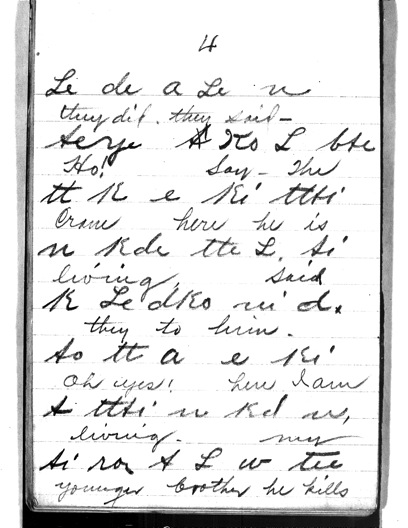 4
Le de a Le n
they did. they said-
Ho! Say- The
tt K e Ki ttHi
Crane here he is
n Kde tte L. Ai
living, said
K Le dKo ni d.
they to him.
Ao tt a e Ki
Oh yes! here I am
A ttHi n Kd n,
living. my
Ai ro A L w tte
younger brother he kills